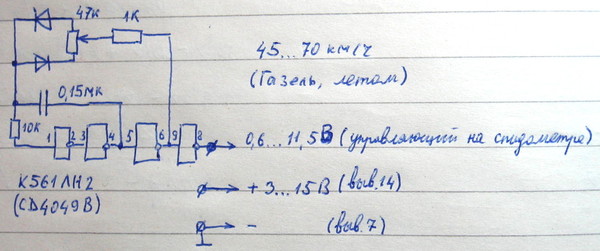 47К 1К
45...70 км/ч
(Газель, летом)
0,15мк
10К
1 2 3 4 5 6 9 8
0,6...11,5В (управляющий на спидометра)
К561ЛН2
(CD4049B)
+3...15В (выв.14)
- (выв.7)